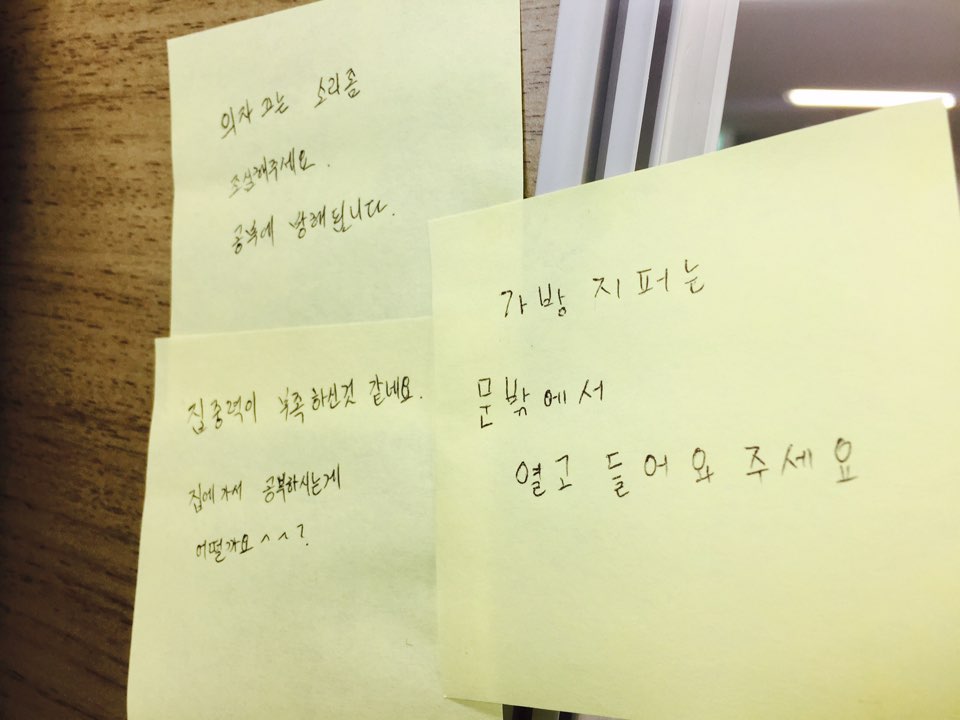 의자 끄는 소리좀
조심해주세요.
공부에 방해됩니다.
집중력이 부족하신것 같네요.
집에가서 공부하시는게
어떨까요^^?
가방 지퍼는
문밖에서
열고 들어와 주세요